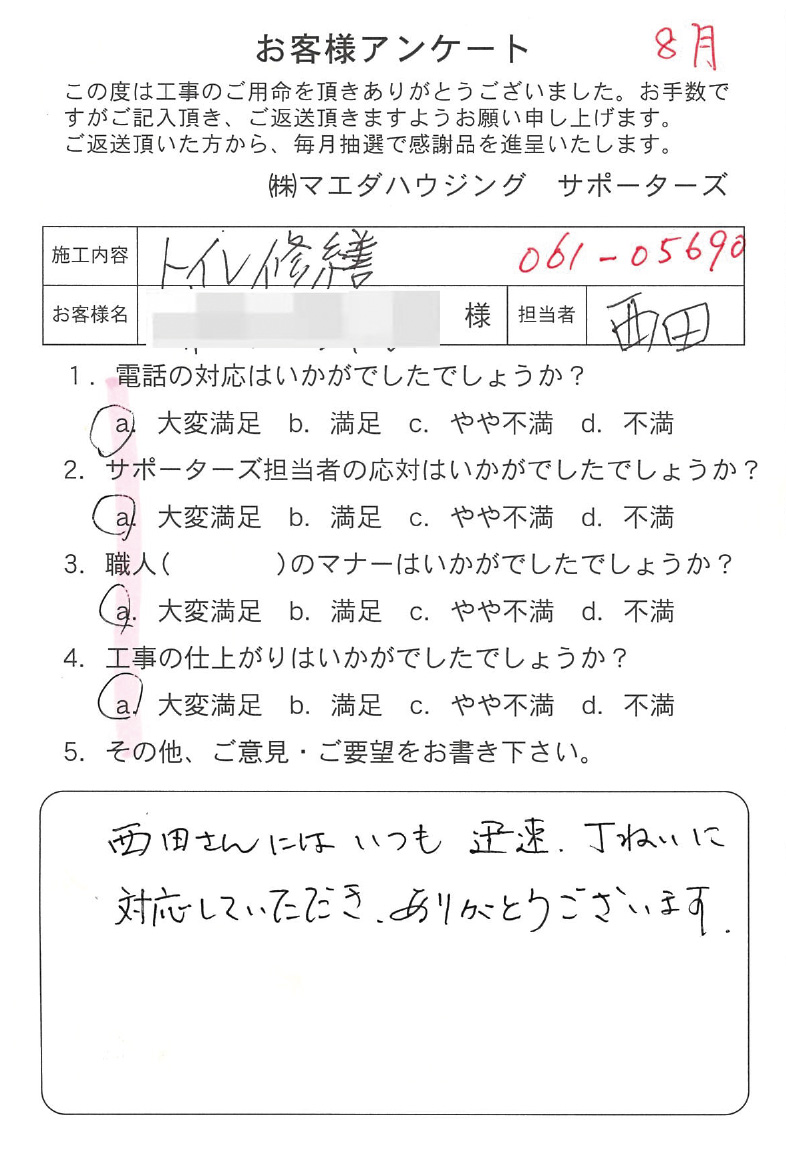 お客様アンケート 8月
この度は工事のご用命を頂きありがとうございました。お手数で
すがご記入頂き、ご返送頂きますようお願い申し上げます。
ご返送頂いた方から、毎月抽選で感謝品を進呈いたします。
㈱マエダハウジング サポーターズ
施工内容 トイレ修繕 061-05690
お客様名 様 担当者 西田
1. 電話の対応はいかがでしたでしょうか?
a. 大変満足 b. 満足 c. やや不満 d. 不満
2. サポーターズ担当者の応対はいかがでしたでしょうか?
a. 大変満足 b. 満足 c. やや不満 d. 不満
3. 職人( )のマナーはいかがでしたでしょうか?
a. 大変満足 b. 満足 c. やや不満 d. 不満
4. 工事の仕上がりはいかがでしたでしょうか?
a. 大変満足 b. 満足 c. やや不満 d. 不満
5. その他、ご意見・ご要望をお書き下さい。
西田さんには いつも 迅速、丁ねいに
対応していただき、ありがとうございます.